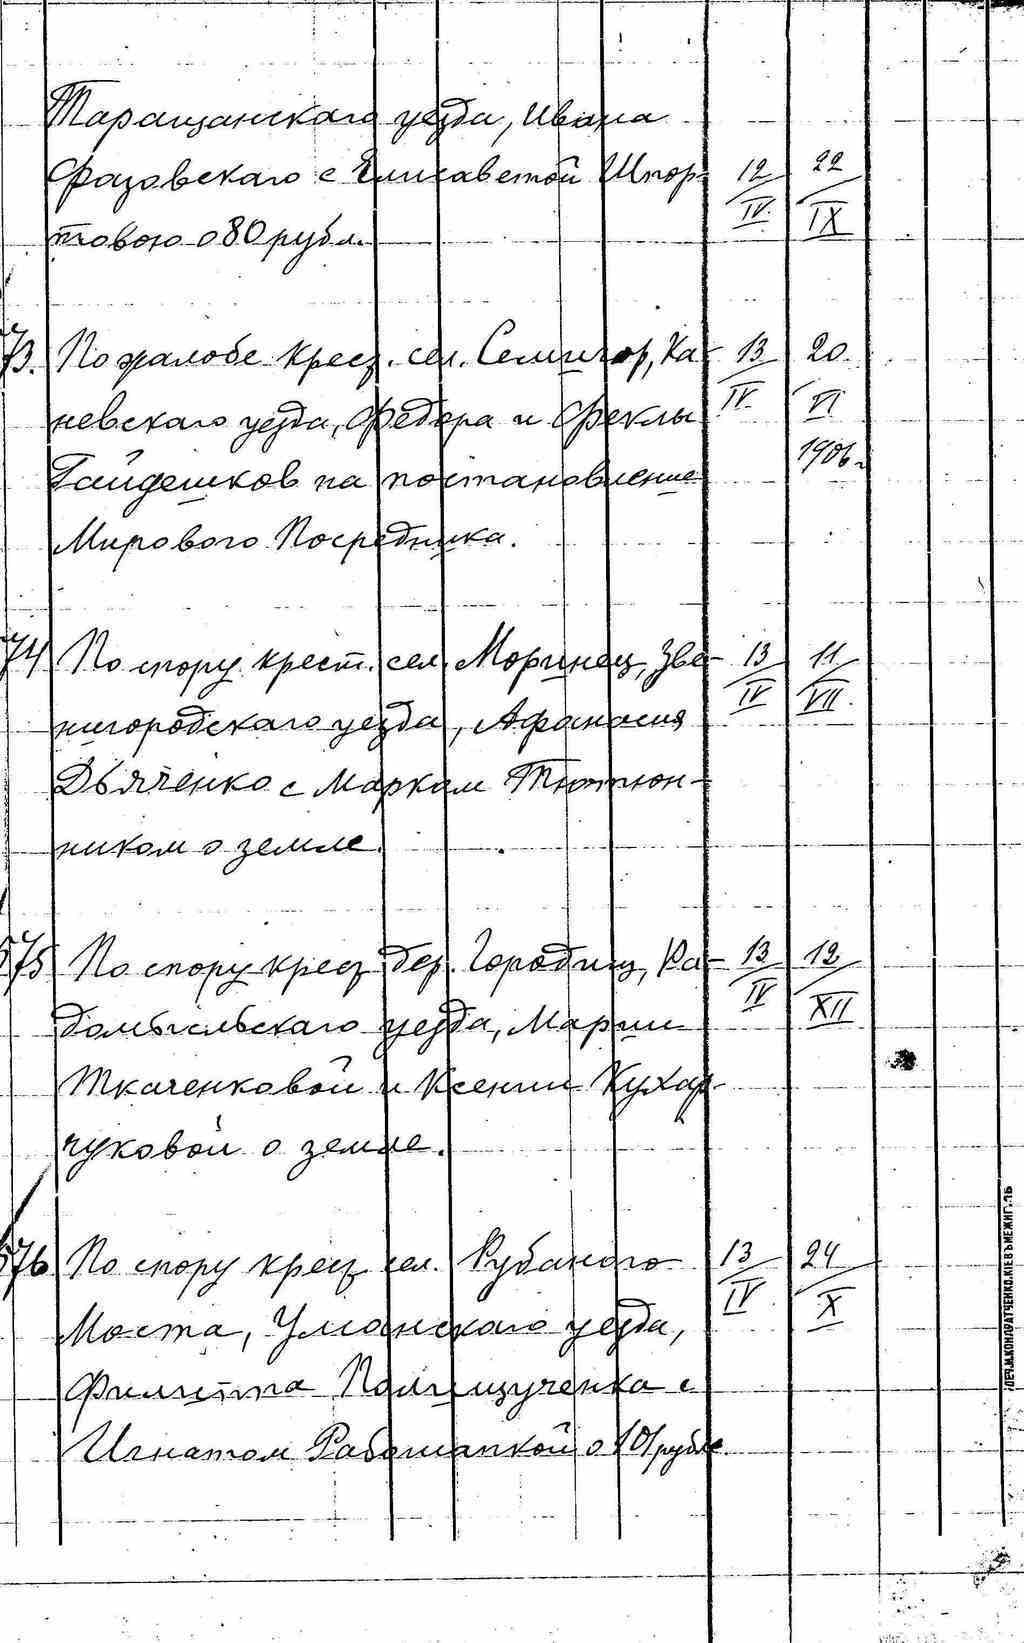 Таращанскаго уезда, Ивана
Фазовскаго с Елисаветой Шпор- 12/IV. 22/IX
товою о 80 рубл.
73. По жалобе крест. сел. Семигор, Ка- 13/IV. 20/VI
невскаго уезда, Федора и Феклы
1906 г.
Гайдешков на постановление
Мирового Посредника.
74 По спору крест. сел. Моринец, Зве- 13/IV 11/VII.
нигородскаго уезда, Афанасия
Дьяченко с Марком Тютюн-
ником о земле.
575 По спору крест. дер. Городищ, Ра- 13/IV 12/XII
домысльскаго уезда, Марии
Ткаченковой и Ксении Кухар-
чуковой о земле.
576 По спору крест. сел. Рубаного 13/IV 24/X
Моста, Уманскаго уезда,
Филиппа Полищученка с
Игнатом о 101 рубле.
ПЕЧ.М.КОНДРАТЧЕНКО.КІЕВЪ